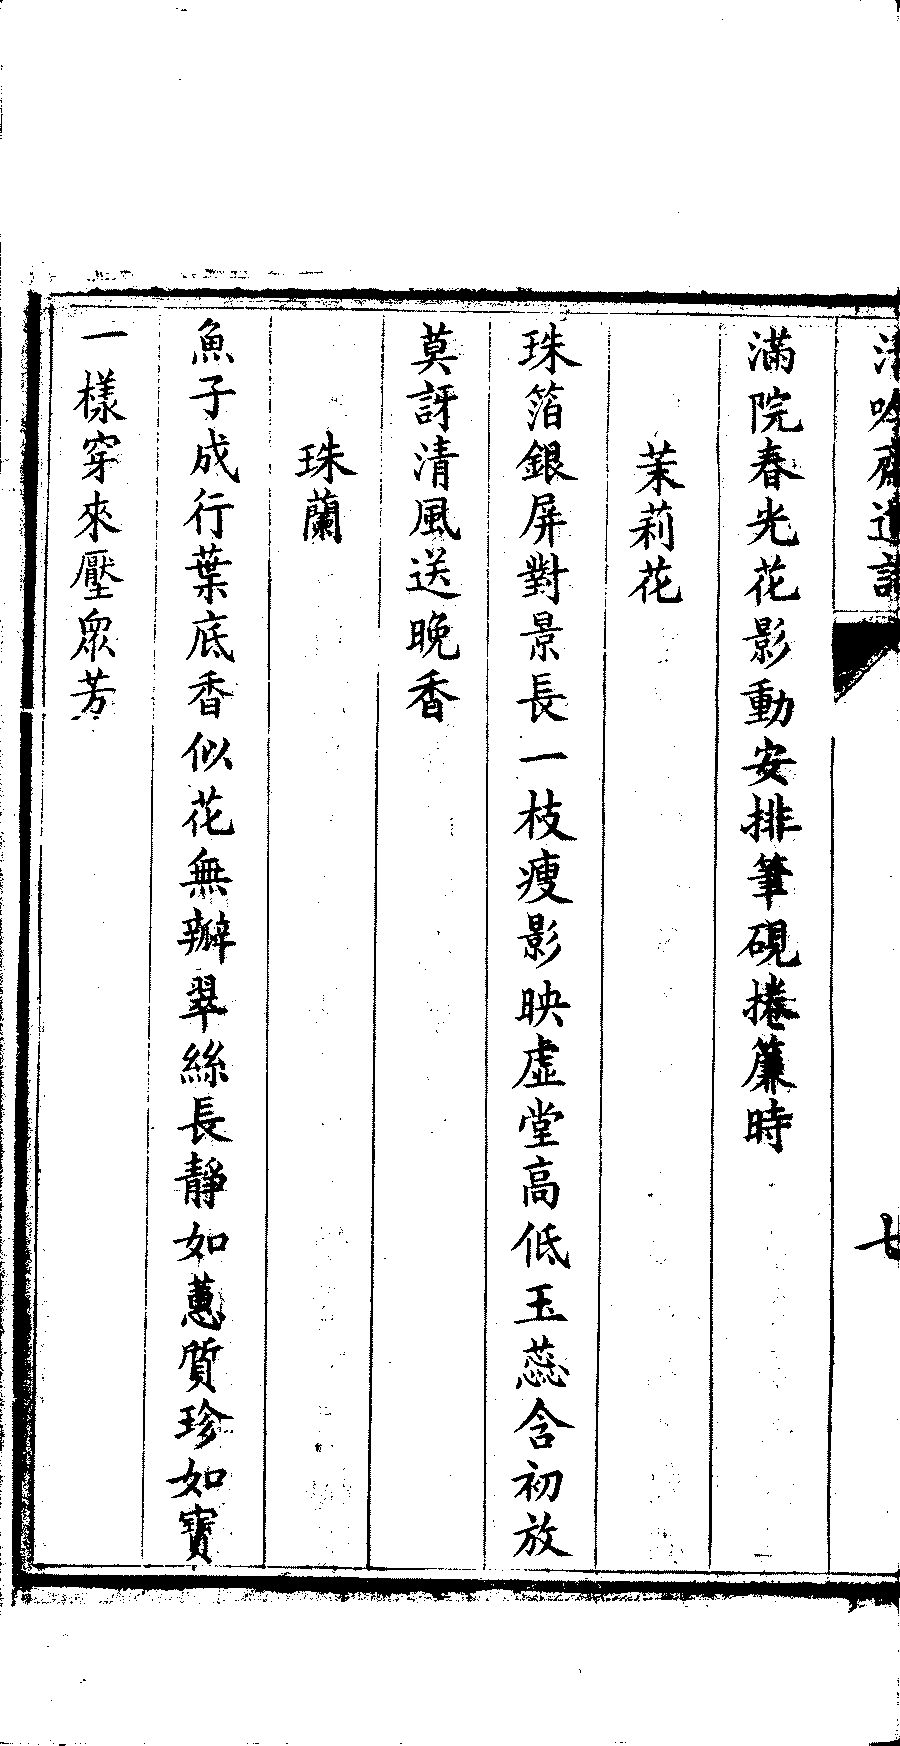 清吟齋遺詩
七
滿院春光花影動安排筆硯捲簾時
茉莉花
珠箔銀屏對景長一枝瘦影映虛堂高低玉蕊含初放
莫訝清風送晚香
珠蘭
魚子成行葉底香似花無瓣翠絲長靜如蕙質珍如寶
一樣穿來壓眾芳